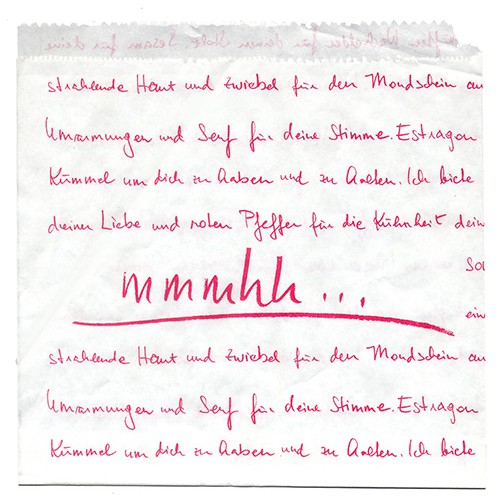 strahlende Haut und Zwiebel für den Mondschein au
Umarmungen und Senf für deine Stimme. Estragon
Kümmel um dich zu haben und zu halten. Ich
deiner Liebe und roten Pfeffer für die Kühnheit dein
so
mmmhh...
ein
strahlende Haut und Zwiebel für den Mondschein au
Umarmungen und Senf für deine Stimme. Estragon
Kümmel um dich zu haben und zu halten. Ich